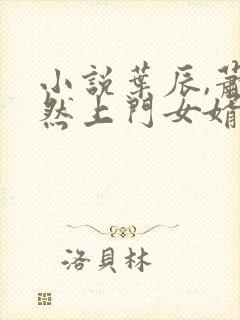 小說葉辰,蕭
然上門女婿
洛貝林